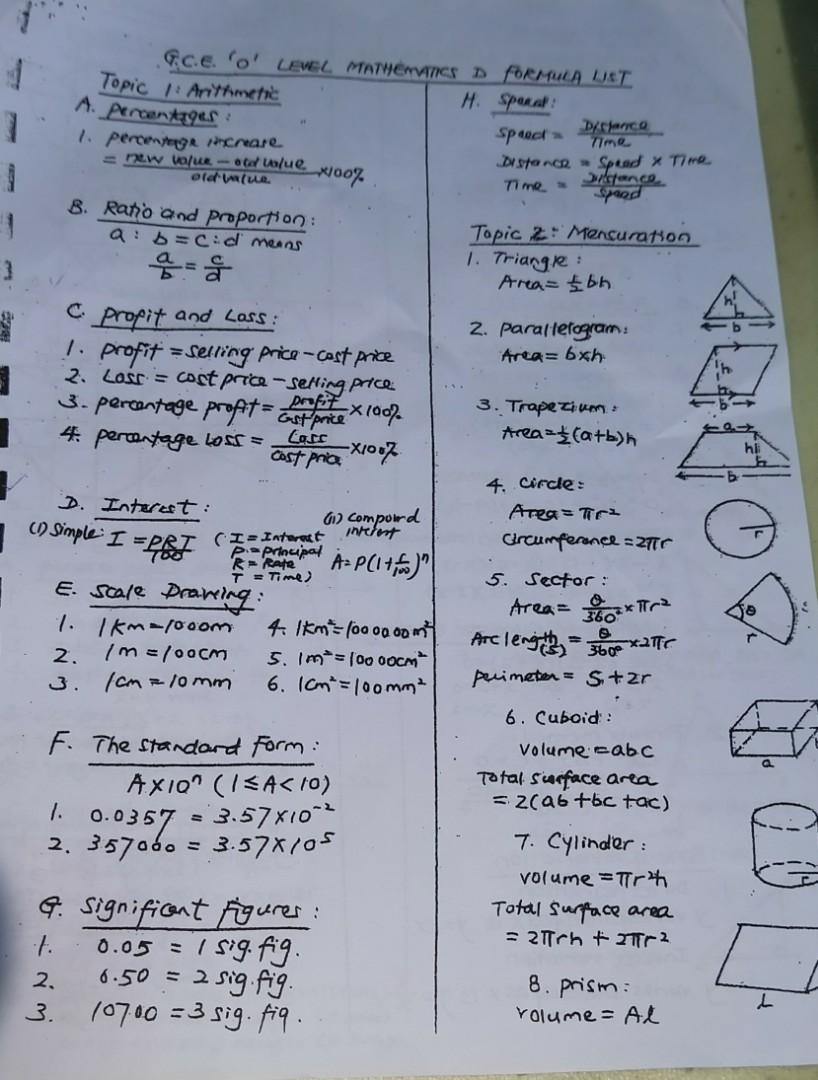 G.C.E. 'O' LEVEL MATHEMATICS D FORMULA LIST
Topic 1: Arithmetic
A. Percentages:
1. percentage increase
= new value - old value / old value ×100%
B. Ratio and proportion:
a : b = c : d means
a/b = c/d
C. Profit and Loss:
1. profit = selling price - cost price
2. Loss = cost price - selling price
3. percentage profit = profit / cost price ×100%
4. percentage loss = Loss / cost price ×100%
D. Interest:
(i) Simple: I = PRT/100 (I = Interest
P = principal
R = Rate
T = Time)
(ii) compound interest
A = P(1+r/100)^n
E. Scale Drawing:
1. 1km = 1000m
2. 1m = 100cm
3. 1cm = 10mm
4. 1km² = 1000000m²
5. 1m² = 10000cm²
6. 1cm² = 100mm²
F. The standard form:
A×10ⁿ (1≤A<10)
1. 0.0357 = 3.57×10⁻²
2. 357000 = 3.57×10⁵
G. Significant figures:
1. 0.05 = 1 sig.fig.
2. 6.50 = 2 sig.fig.
3. 10700 = 3 sig.fig.
H. Speed:
Speed = Distance / Time
Distance = Speed × Time
Time = Distance / Speed
Topic 2: Mensuration
1. Triangle:
Area = ½bh
h
b
2. Parallelogram:
Area = b×h
h
b
3. Trapezium:
Area = ½(a+b)h
a
h
b
4. Circle:
Area = πr²
Circumference = 2πr
r
5. Sector:
Area = θ/360° × πr²
Arc length (S) = θ/360° × 2πr
perimeter = S + 2r
θ
r
6. Cuboid:
Volume = abc
Total surface area
= 2(ab + bc + ac)
a
7. Cylinder:
Volume = πr²h
Total surface area
= 2πrh + 2πr²
r
8. prism:
Volume = Al
L